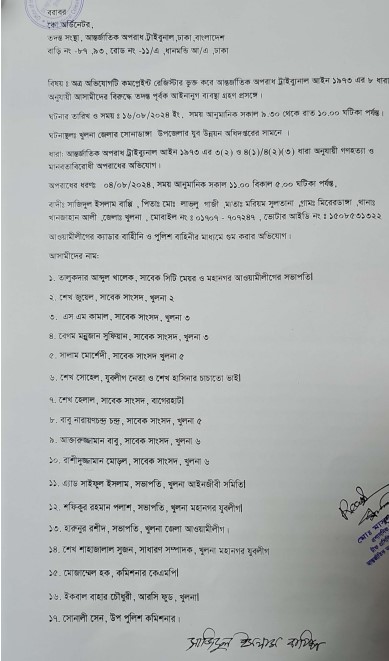 বরাবর
কো অর্ডিনেটর,
তদন্ত সংস্থা, আন্তর্জাতিক অপরাধ ট্রাইব্যুনাল, ঢাকা, বাংলাদেশ
বাড়ি নং -৮৭ ,৯৩, রোড নং -১১/এ ,ধানমন্ডি আ/এ ,ঢাকা
বিষয় : অত্র অভিযোগটি কমপ্লেইন্ট রেজিস্টার ভুক্ত করে আন্তর্জাতিক অপরাধ ট্রাইব্যুনাল আইন ১৯৭৩ এর ৮ ধারা
অনুযায়ী আসামীদের বিরুদ্ধে তদন্ত পূর্বক আইনানুগ ব্যবস্থা গ্রহণ প্রসঙ্গে।
ঘটনার তারিখ ও সময় : ১৬/০৮/২০২৪ ইং , সময় আনুমানিক সকাল ৯.৩০ থেকে রাত ১০.০০ ঘটিকা পর্যন্ত।
ঘটনাস্থলঃ খুলনা জেলার সোনাডাঙ্গা উপজেলার যুব উন্নয়ন অধিদপ্তরের সামনে ।
ধারা: আন্তর্জাতিক অপরাধ ট্রাইব্যুনাল আইন ১৯৭৩ এর ৩(২) ও ৪(১)/৪(২)(৩) ধারা অনুযায়ী গণহত্যা ও
মানবতাবিরোধী অপরাধের অভিযোগ।
অপরাধের ধরণঃ ০৪/০৮/২০২৪, সময় আনুমানিক সকাল ১১.০০ বিকাল ৫.০০ ঘটিকা পর্যন্ত,
বাদীঃ সাজিদুল ইসলাম বাপ্পি , পিতাঃ মোঃ লাভলু গাজী ,মাতাঃ মরিয়ম সুলতানা ,গ্রামঃ মিরেরডাঙ্গা ,থানাঃ
খানজাহান আলী ,জেলাঃ খুলনা , মোবাইল নং : ০১৭০৭ - ৭০৭২৪৭ , ভোটার আইডি নং : ১৫০৮৫৩১৩২২
আওয়ামীলীগের ক্যাডার বাহিনি ও পুলিশ বাহিনীর মাধ্যমে গুম করার অভিযোগ।
আসামীদের নাম:
১. তালুকদার আব্দুল খালেক, সাবেক সিটি মেয়র ও মহানগর আওয়ামীলীগের সভাপতি।
২. শেখ জুয়েল, সাবেক সাংসদ, খুলনা ২
৩. এস এম কামাল, সাবেক সাংসদ, খুলনা ৩
৪. বেগম মন্নুজান সুফিয়ান, সাবেক সাংসদ, খুলনা ৩
৫. সালাম মোর্শেদী, সাবেক সাংসদ খুলনা ৫
৬. শেখ সোহেল, যুবলীগ নেতা ও শেখ হাসিনার চাচাতো ভাই।
৭. শেখ হেলাল, সাবেক সাংসদ, বাগেরহাট।
৮. বাবু নারায়ণচন্দ্র চন্দ্র, সাবেক সাংসদ, খুলনা ৫
৯. আক্তারুজ্জামান বাবু, সাবেক সাংসদ, খুলনা ৬
১০. রাশীদুজ্জামান মোড়ল, সাবেক সাংসদ, খুলনা ৬
১১. এ্যাড সাইফুল ইসলাম, সভাপতি, খুলনা আইনজীবী সমিতি।
১২. শফিকুর রহমান পলাশ, সভাপতি, খুলনা মহানগর যুবলীগ।
১৩. হারুনুর রশীদ, সভাপতি, খুলনা জেলা আওয়ামীলীগ।
১৪. শেখ শাহাজালাল সুজন, সাধারণ সম্পাদক, খুলনা মহানগর যুবলীগ
১৫. মোজাম্মেল হক, কমিশনার কেএমপি।
১৬. ইকবাল বাহার চৌধুরী, আরসি ফুড, খুলনা।
১৭. সোনালী সেন, উপ পুলিশ কমিশনার।
সাজিদুল ইসলাম বাপ্পি